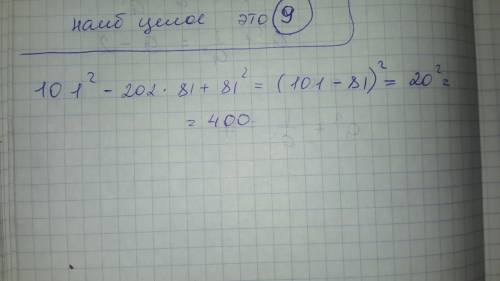 наиб целое это 9
101² - 202 · 81 + 81² = (101 - 81)² = 20² =
= 400.